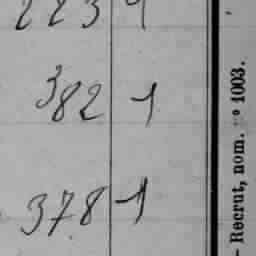 2 2 3 1
382 1
378 1
— Recrut, nom. nº 1003.